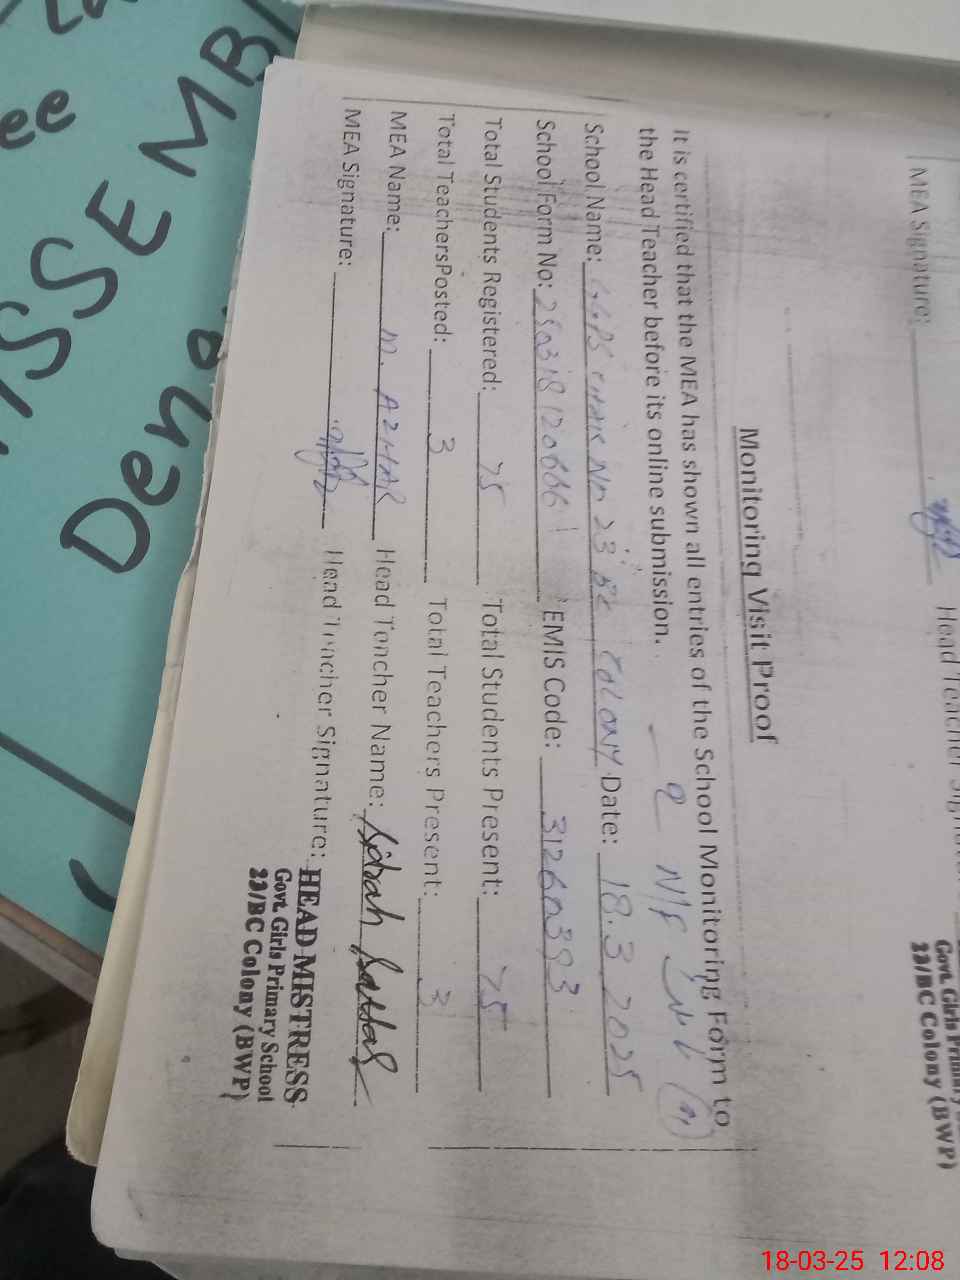 MEA Signature:
Head Teacher
Govt. Girls Primary
23/BC Colony (BWP)
Monitoring Visit Proof
It is certified that the MEA has shown all entries of the School Monitoring Form to
the Head Teacher before its online submission.
School Name: GGPS 23 BC COLONY Date: 18.3 2025
School Form No: EMIS Code:
Total Students Registered: 75 Total Students Present: 75
Total TeachersPosted: 3 Total Teachers Present: 3
MEA Name: M. AZHAR Head Teacher Name: Sattar
MEA Signature: Head Teacher Signature: HEAD MISTRESS
Govt. Girls Primary School
23/BC Colony (BWP)
ee
ASSEMB
Den
18-03-25 12:08